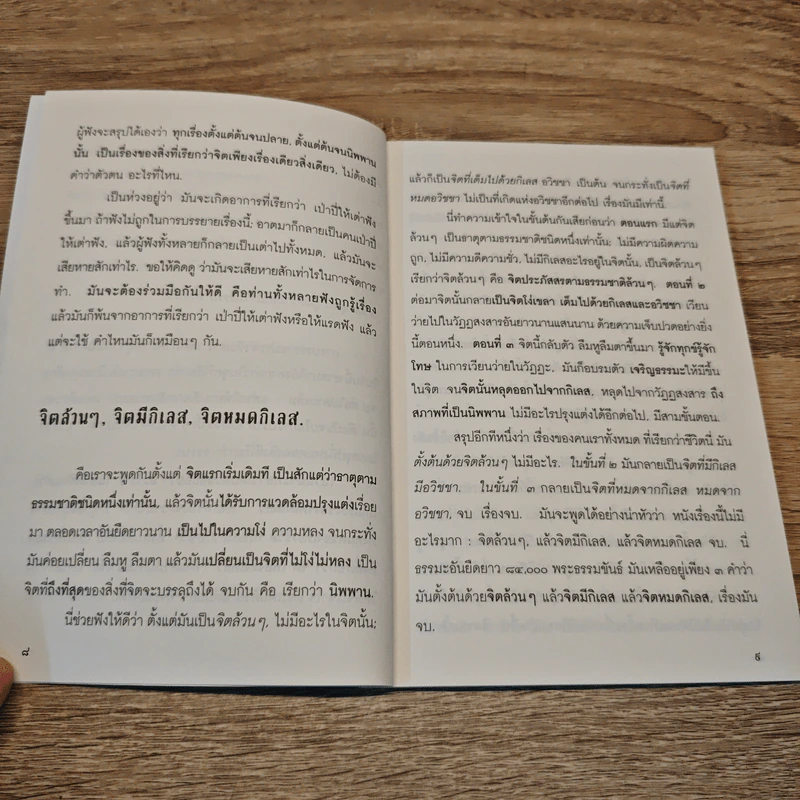 ผู้ฟังจะสรุปได้เองว่า ทุกเรื่องตั้งแต่ต้นจนปลาย, ตั้งแต่ต้นจนนิพพาน
นั้น เป็นเรื่องของสิ่งที่เรียกว่าจิตเพียงเรื่องเดียวสิ่งเดียว, ไม่ต้องมี
คำว่าตัวตน อะไรที่ไหน.
เป็นห่วงอยู่ว่า มันจะเกิดอาการที่เรียกว่า เป่าปี่ให้เต่าฟัง
ขึ้นมา ถ้าฟังไม่ถูกในการบรรยายเรื่องนี้; อาตมาก็กลายเป็นคนเป่าปี่
ให้เต่าฟัง, แล้วผู้ฟังทั้งหลายก็กลายเป็นเต่าไปทั้งหมด, แล้วมันจะ
เสียหายสักเท่าไร. ขอให้คิดดู ว่ามันจะเสียหายสักเท่าไรในการจัดการ
ทำ. มันจะต้องร่วมมือกันให้ดี คือท่านทั้งหลายฟังถูกรู้เรื่อง
แล้วมันก็พ้นจากอาการที่เรียกว่า เป่าปี่ให้เต่าฟังหรือให้แรดฟัง แล้ว
แต่จะใช้ คำไหนมันก็เหมือนๆ กัน.
จิตล้วนๆ, จิตมีกิเลส, จิตหมดกิเลส.
คือเราจะพูดกันตั้งแต่ จิตแรกเริ่มเดิมที เป็นสักแต่ว่าธาตุตาม
ธรรมชาติชนิดหนึ่งเท่านั้น, แล้วจิตนั้นได้รับการแวดล้อมปรุงแต่งเรื่อย
มา ตลอดเวลาอันยืดยาวนาน เป็นไปในความโง่ ความหลง จนกระทั่ง
มันค่อยเปลี่ยน ลืมหู ลืมตา แล้วมันเปลี่ยนเป็นจิตที่ไม่โง่ไม่หลง เป็น
จิตที่ถึงที่สุดของสิ่งที่จิตจะบรรลุถึงได้ จบกัน คือ เรียกว่า นิพพาน.
นี่ช่วยฟังให้ดีว่า ตั้งแต่มันเป็นจิตล้วน ๆ, ไม่มีอะไรในจิตนั้น;
๘
แล้วก็เป็นจิตที่เต็มไปด้วยกิเลส อวิชชา เป็นต้น จนกระทั่งเป็นจิตที่
หมดอวิชชา ไม่เป็นที่เกิดแห่งอวิชชาอีกต่อไป เรื่องมันมีเท่านี้.
นี่ทำความเข้าใจในขั้นต้นกันเสียก่อนว่า ตอนแรก มีแต่จิต
ล้วนๆ เป็นธาตุตามธรรมชาติชนิดหนึ่งเท่านั้น; ไม่มีความผิดความ
ถูก, ไม่มีความดีความชั่ว, ไม่มีกิเลสอะไรอยู่ในจิตนั้น, เป็นจิตล้วนๆ
เรียกว่าจิตล้วนๆ คือ จิตประภัสสรตามธรรมชาติล้วนๆ. ตอนที่ ๒
ต่อมาจิตนั้นกลายเป็นจิตโง่เขลา เต็มไปด้วยกิเลสและอวิชชา เวียน
ว่ายไปในวัฏฏสงสารอันยาวนานแสนนาน ด้วยความเจ็บปวดอย่างยิ่ง
นี้ตอนหนึ่ง. ตอนที่ ๓ จิตนี้กลับตัว ลืมหูลืมตาขึ้นมา รู้จักทุกข์รู้จัก
โทษ ในการเวียนว่ายในวัฏฏะ, มันก็อบรมตัว เจริญธรรมะให้มีขึ้น
ในจิต จนจิตนั้นหลุดออกไปจากกิเลส, หลุดไปจากวัฏฏสงสาร ถึง
สภาพที่เป็นนิพพาน ไม่มีอะไรปรุงแต่งได้อีกต่อไป, มีสามขั้นตอน.
สรุปอีกทีหนึ่งว่า เรื่องของคนเราทั้งหมด ที่เรียกว่าชีวิตนี้ มัน
ตั้งต้นด้วยจิตล้วนๆ ไม่มีอะไร. ในขั้นที่ ๒ มันกลายเป็นจิตที่มีกิเลส
มีอวิชชา, ในขั้นที่ ๓ กลายเป็นจิตที่หมดจากกิเลส หมดจาก
อวิชชา, จบ เรื่องจบ. มันจะพูดได้อย่างน่าหัวว่า หนังเรื่องนี้ไม่มี
อะไรมาก : จิตล้วนๆ, แล้วจิตมีกิเลส, แล้วจิตหมดกิเลส จบ. นี่
ธรรมะอันยืดยาว ๘๔,๐๐๐ พระธรรมขันธ์ มันเหลืออยู่เพียง ๓ คำว่า
มันตั้งต้นด้วยจิตล้วน ๆ แล้วจิตมีกิเลส แล้วจิตหมดกิเลส, เรื่องมัน
จบ.
๙